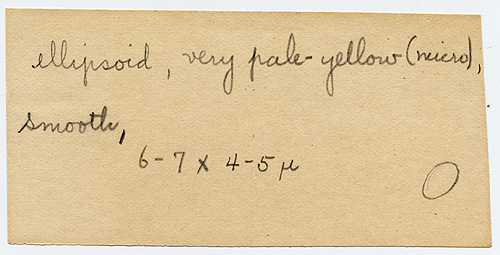 ellipsoid, very pale-yellow (micro),
smooth,
6-7 x 4-5 μ